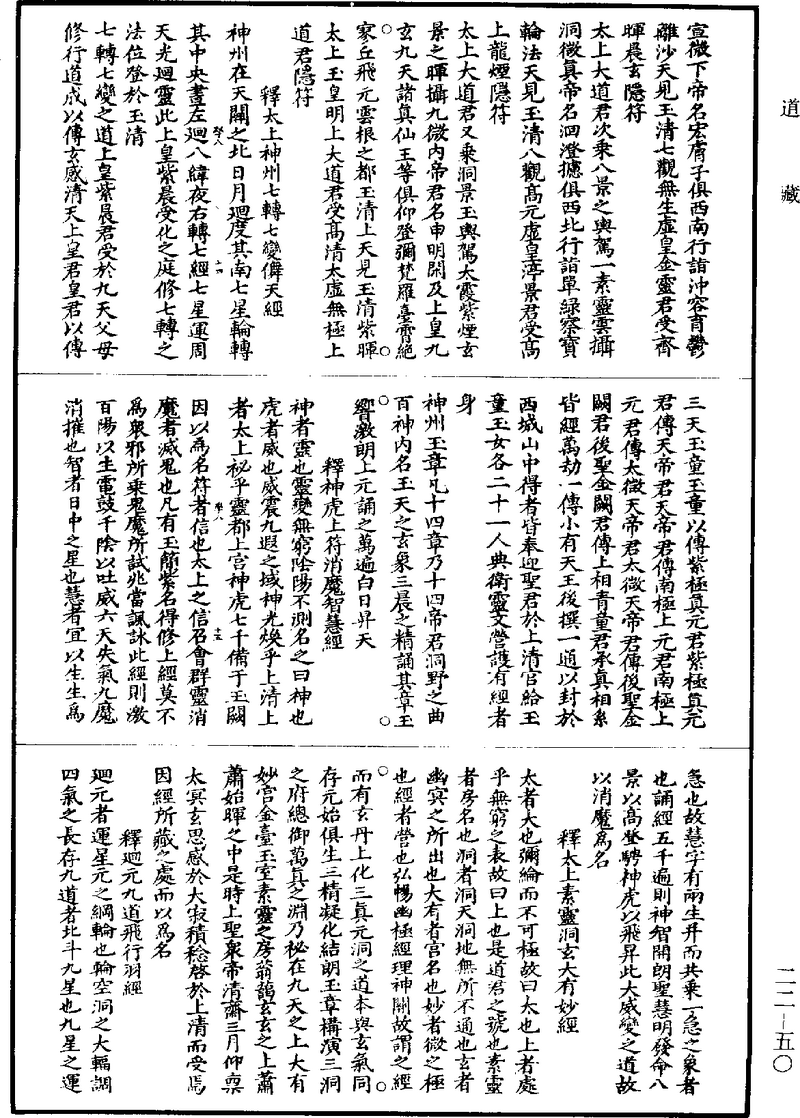 道藏
宣微下帝名宏膚子俱西南行詣沖容育鬱
離沙天見玉清七觀無生虛皇金靈君受齊
暉晨玄隱符
太上大道君次乘八景之輿駕一素靈雲攝
洞微真帝名洄澄攄俱西北行詣單綠察寶
輪法天見玉清八觀高元虛皇淳景君受高
上龍煙隱符
太上大道君又乘洞景玉輿駕太霞紫煙玄
景之暉攝九微內帝君名申明閑及上皇九
玄九天諸真仙王等俱仰登彌梵羅臺霄絕
寥丘飛元雲根之都玉清上天見玉清紫暉
太上玉皇明上大道君受高清太虛無極上
道君隱符
釋太上神州七轉七變儛天經
神州在天關之北日月迴度其南七星輪轉
其中央晝左迴八緯夜右轉七經七星運周
天光迴靈此上皇紫晨受化之庭修七轉之
法位登於玉清
七轉七變之道上皇紫晨君受於九天父母
修行道成以傳玄感清天上皇君皇君以傳
三天玉童玉童以傳紫極真元君紫極真元
君傳天帝君天帝君傳南極上元君南極上
元君傳太微天帝君太微天帝君傳後聖金
闕君後聖金闕君傳上相青童君承真相系
皆經萬劫一傳小有天王後撰一通以封於
西城山中得者皆奉迎聖君於上清宮給玉
童玉女各二十一人典衛靈文營護有經者
身
神州玉章凡十四章乃十四帝君洞野之曲
百神內名玉天之玄象三晨之精誦其章玉
響激朗上元誦之萬遍白日昇天
釋神虎上符消魔智慧經
神者靈也靈變無窮陰陽不測名之曰神也
虎者威也威震九遐之域神光煥乎上清上
者太上祕乎靈都上宮神虎七千備于玉闕
因以為名符者信也太上之信召會群靈消
魔者滅鬼也凡有玉簡紫名得修上經莫不
為眾邪所乘鬼魔所試兆當諷詠此經則激
百陽以生電鼓千陰以吐威六天失氣九魔
消摧也智者日中之星也慧者宜以生生為
急也故慧字有兩生并而共乘一急之象者
也誦經五千遍則神智開朗聖慧明發命八
景以高登騁神虎以飛昇此大威變之道故
以消魔為名
釋太上素靈洞玄大有妙經
太者大也彌綸而不可極故曰太也上者處
乎無窮之表故曰上也是道君之號也素靈
者房名也洞者洞天洞地無所不通也玄者
幽冥之所出也大有者宮名也妙者微之極
也經者營也弘暢幽極經理神關故謂之經
而有玄丹上化三真元洞之道本與玄氣同
存元始俱生三精凝化結朗玉章構演三洞
之府總御萬真之淵乃祕在九天之上大有
妙宮金臺玉室素靈之房蓊藹玄玄之上蕭
蕭始暉之中是時上聖眾帝清齋三月仰稟
太冥玄思感於大寂積稔啓於上清而受焉
因經所藏之處而以為名
釋迴元九道飛行羽經
迴元者運星元之綱輪也輪空洞之大輻調
四氣之長存九道者北斗九星也九星之運
二二—五〇